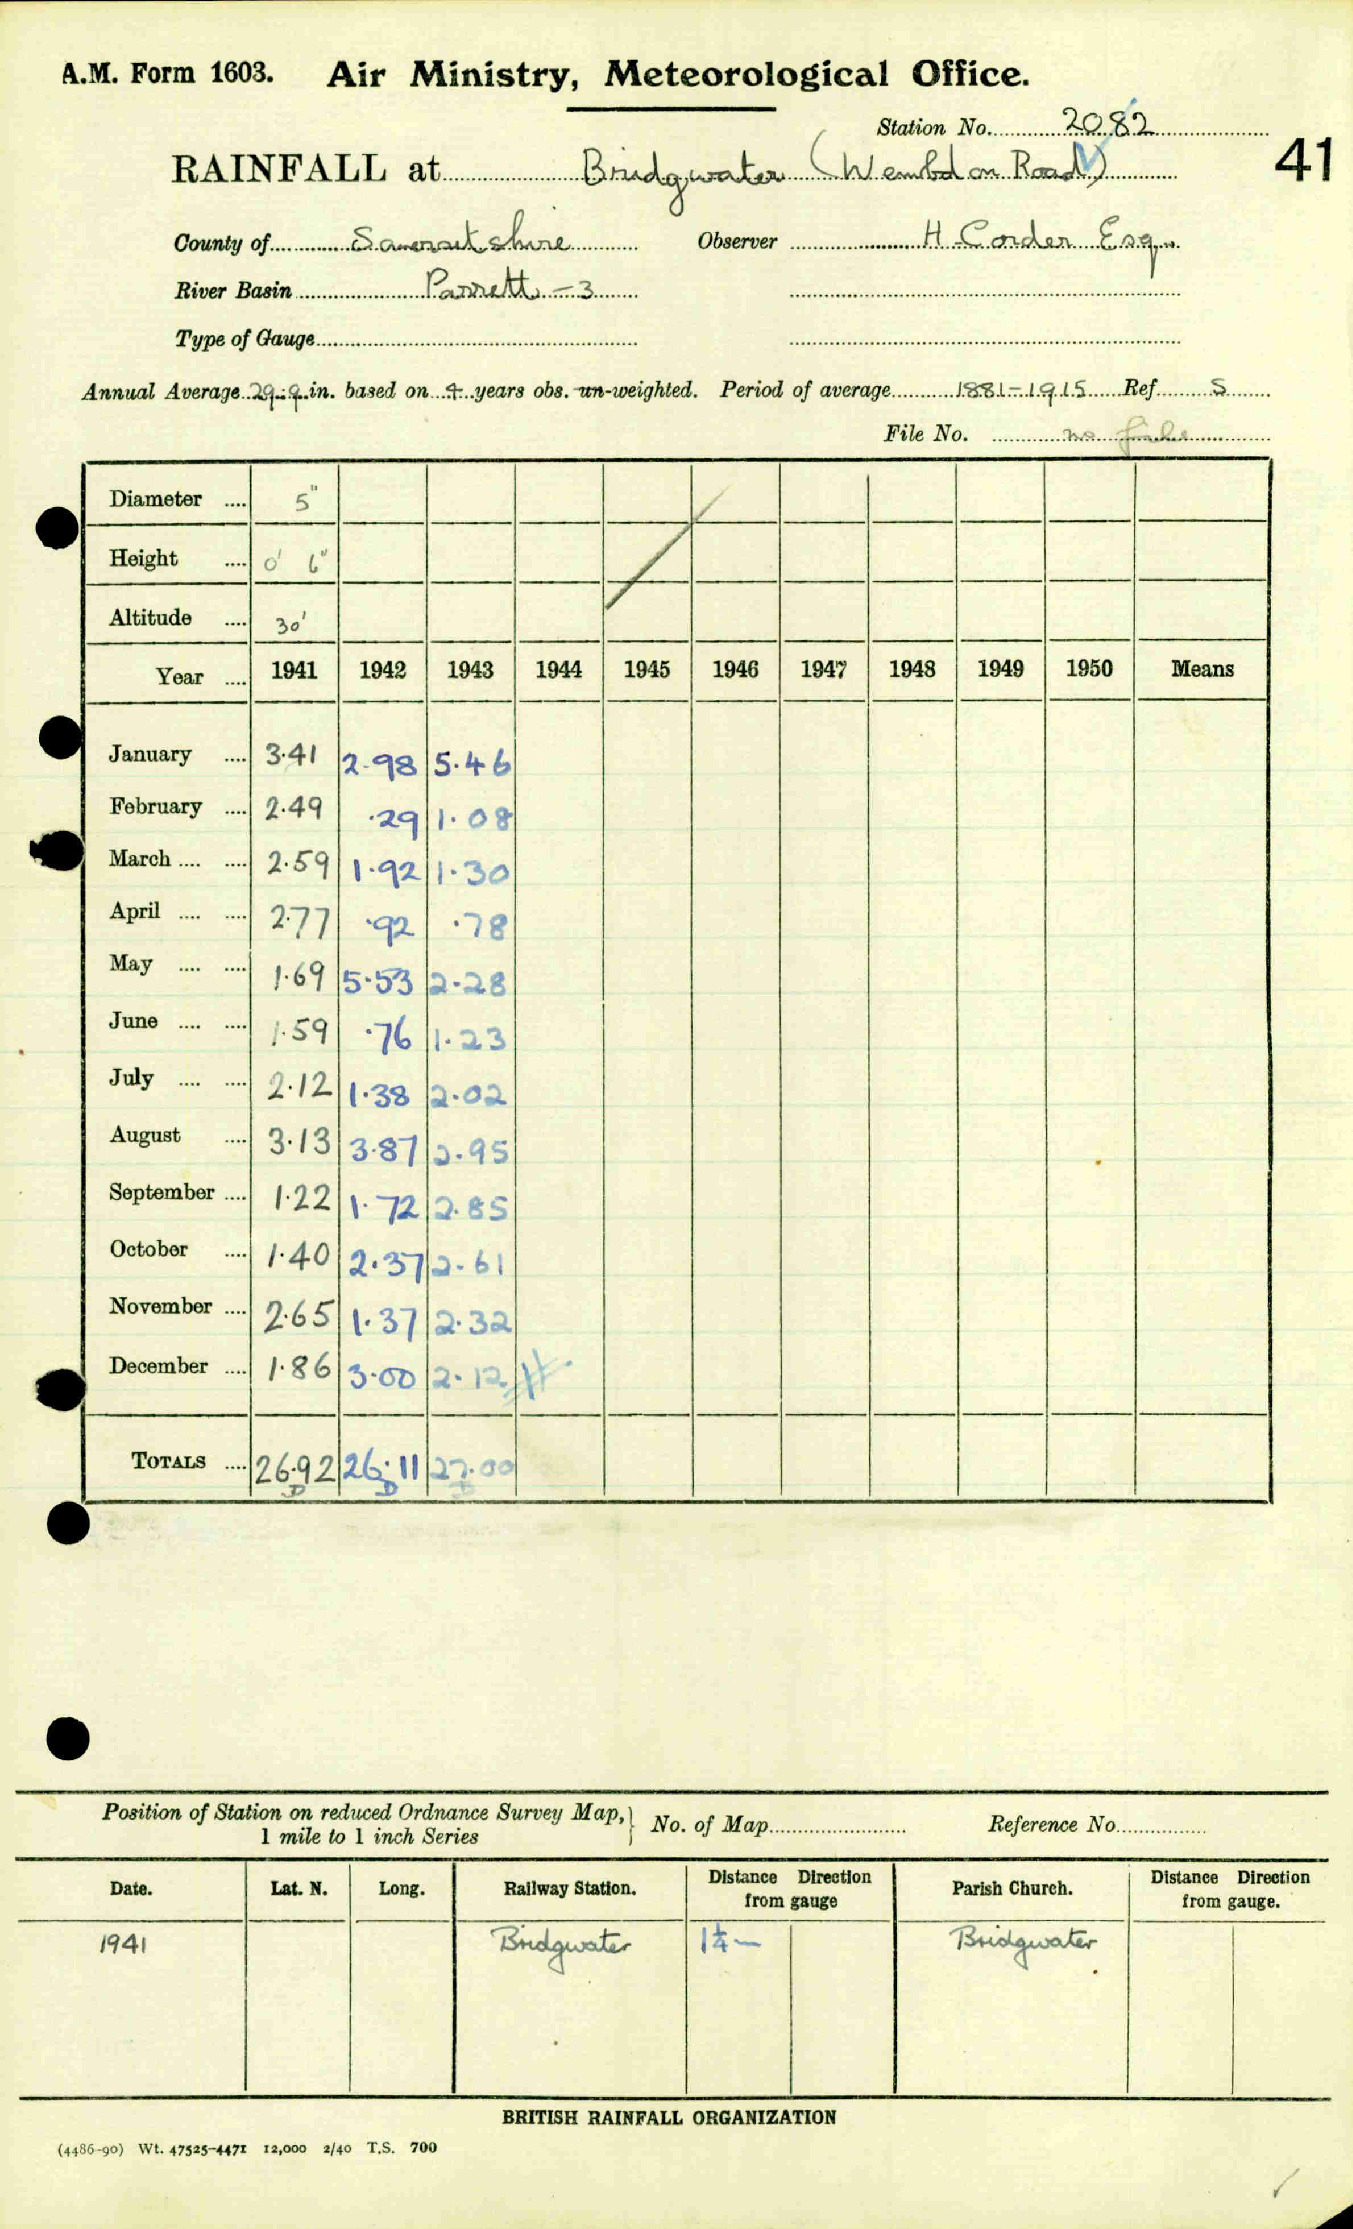 A.M. Form 1603. Air Ministry, Meteorological Office.
Station No. 2082
41
RAINFALL at Bridgwater (Wembdon Road)
County of Somersetshire Observer H Corder Esq.
River Basin Parrett - 3
Type of Gauge
Annual Average 29.9 in. based on 4 years obs. un-weighted. Period of average 1881-1915 Ref S
File No. no file
Diameter .... 5"
Height .... 0' 6"
Altitude .... 30'
Year .... 1941 1942 1943 1944 1945 1946 1947 1948 1949 1950 Means
January .... 3.41 2.98 5.46
February .... 2.49 .29 1.08
March .... .... 2.59 1.92 1.30
April .... .... 2.77 .92 .78
May .... .... 1.69 5.53 2.28
June .... .... 1.59 .76 1.23
July .... .... 2.12 1.38 2.02
August .... 3.13 3.87 2.95
September .... 1.22 1.72 2.85
October .... 1.40 2.37 2.61
November .... 2.65 1.37 2.32
December .... 1.86 3.00 2.12
TOTALS .... 26.92 26.11 27.00
D D D
Position of Station on reduced Ordnance Survey Map, } No. of Map Reference No
1 mile to 1 inch Series
Date. Lat. N. Long. Railway Station. Distance Direction from gauge Parish Church. Distance Direction from gauge.
1941 Bridgwater 1¼ — Bridgwater
BRITISH RAINFALL ORGANIZATION
(4486-90) Wt. 47525-4471 12,000 2/40 T.S. 700